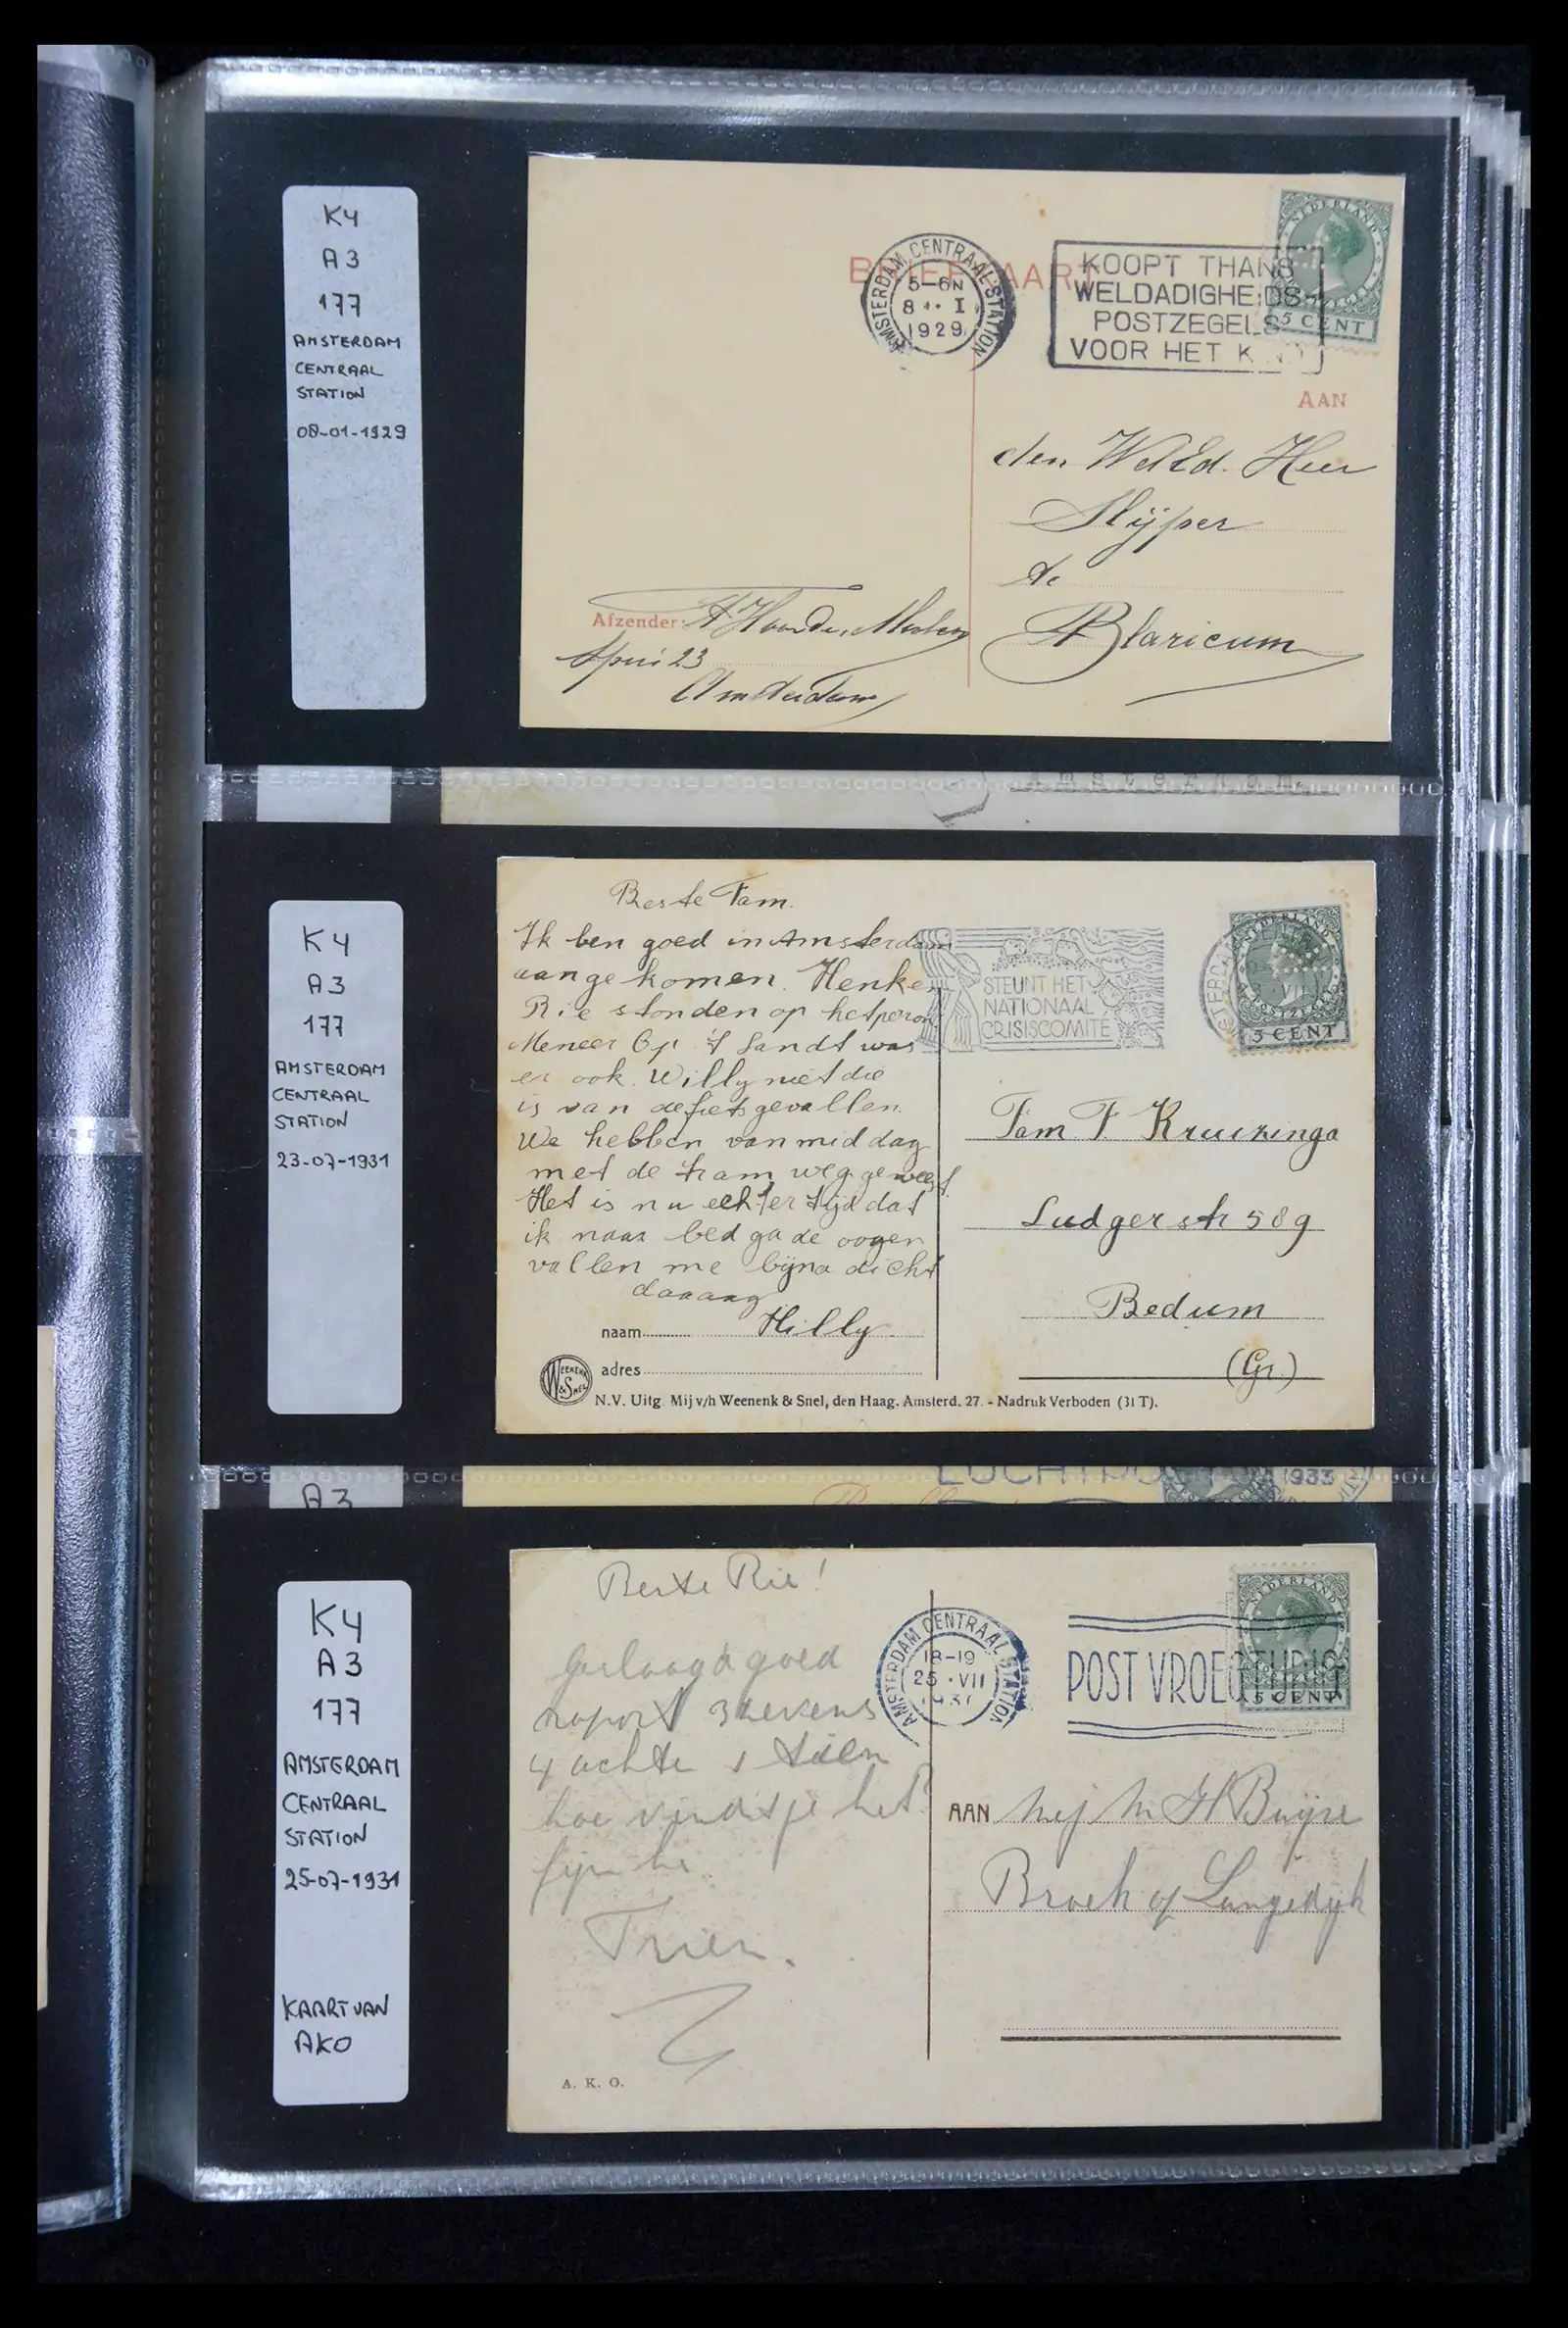 K4
A3
177
AMSTERDAM
CENTRAAL
STATION
08-01-1929
BRIEFKAART
AMSTERDAM CENTRAAL STATION
5-6N
8 I
1929
KOOPT THANS
WELDADIGHEIDS
POSTZEGELS
VOOR HET KIND
NEDERLAND
5 CENT
AAN
den WelEd. Heer
Slijper
te
Blaricum
Afzender:
Spui 23
Amsterdam
Amsterdam.
K4
A3
177
AMSTERDAM
CENTRAAL
STATION
23-07-1931
Beste Fam.
Ik ben goed in Amsterdam
aangekomen. Henk en
Rie stonden op het peron
Meneer Op 't Landt was
er ook. Willy niet die
is van de fiets gevallen.
We hebben van middag
met de tram weg geweest.
Het is nu echter tijd dat
ik naar bed ga de oogen
vallen me bijna dicht
daaaag
naam Hilly
adres
WEENENK & SNEL
N.V. Uitg. Mij v/h Weenenk & Snel, den Haag. Amsterd. 27. - Nadruk Verboden (31 T).
STEUNT HET
NATIONAAL
CRISISCOMITE
NEDERLAND
VII
POSTZEGEL
5 CENT
Fam. F Kruizinga
Ludgerstr 58g
Bedum
(Gr.)
A3
LUCHTPO
1933
K4
A3
177
AMSTERDAM
CENTRAAL
STATION
25-07-1931
KAART VAN
AKO
Beste Rie!
Geslaagd goed
raport 3 zevens
4 achte 1 tien
hoe vindt je het?
fijn he.
Trien.
A. K. O.
AMSTERDAM CENTRAAL STATION
18-19
25 VII
1931
POST VROEGTIJDIG
NEDERLAND
5 CENT
AAN Mej. Buijze
Broek op Langedijk